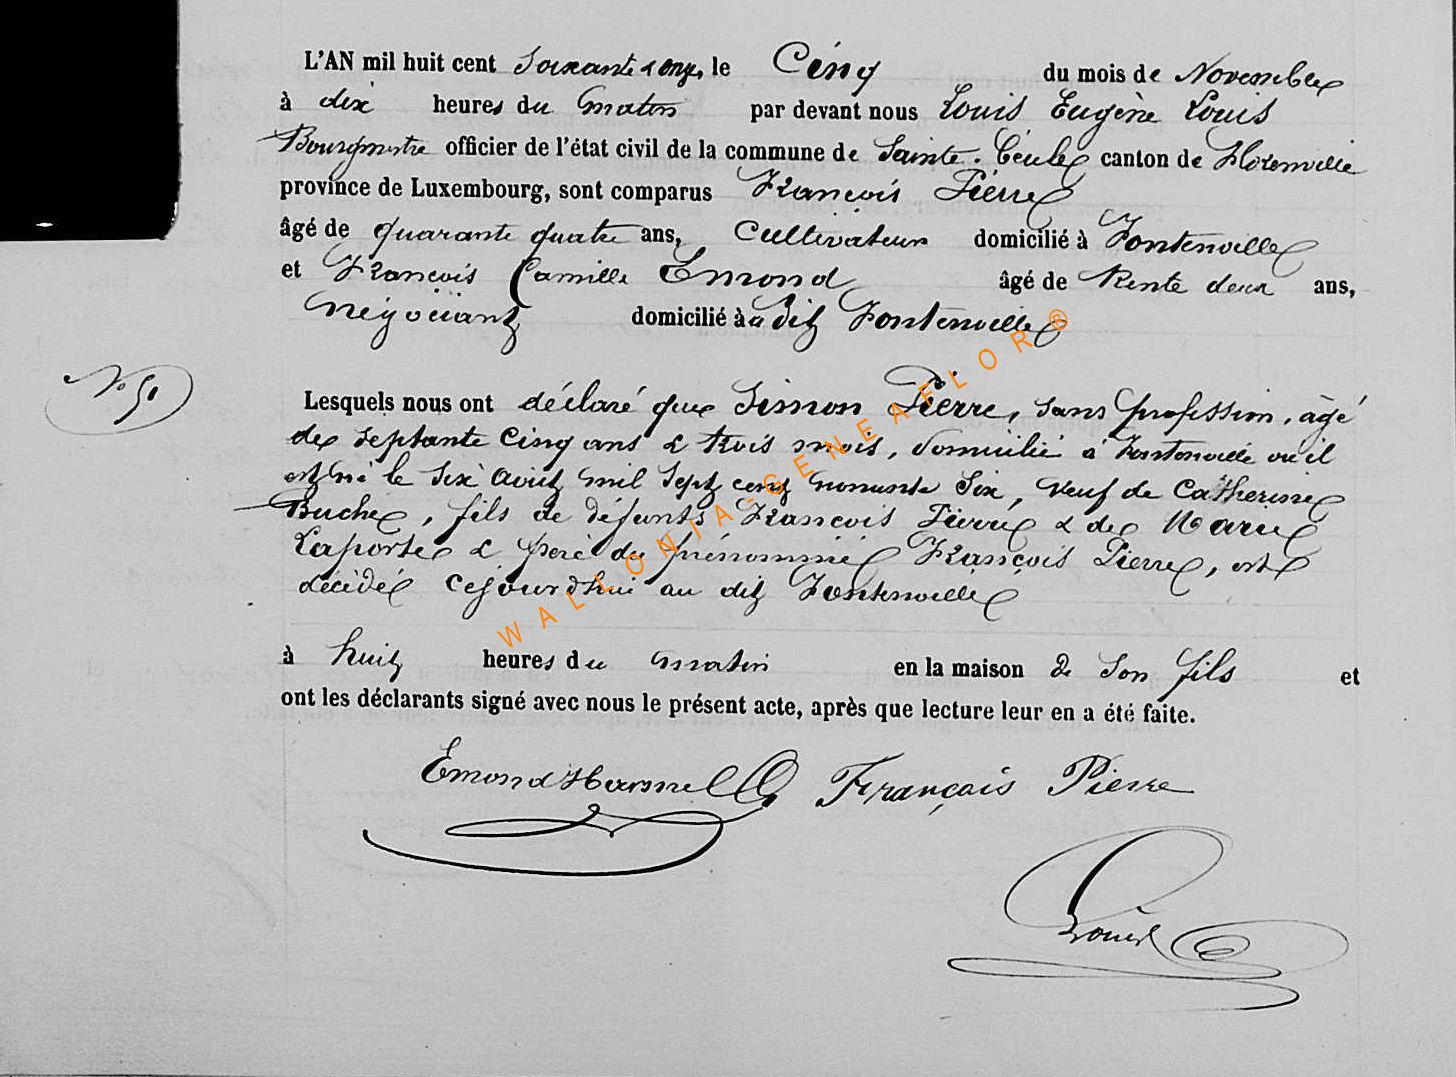 L'AN mil huit cent Soixante & onze, le Cinq du mois de Novembre
à dix heures du matin par devant nous Louis Eugène Louis
Bourgmestre officier de l'état civil de la commune de Sainte-Cécile canton de Florenville
province de Luxembourg, sont comparus François Pierre
âgé de quarante quatre ans, Cultivateur domicilié à Fontenoille
et François Camille Emond âgé de trente deux ans,
négociant domicilié à a dit Fontenoille
N° 51
Lesquels nous ont déclaré que Simon Pierre, sans profession, âgé
de septante cinq ans & trois mois, domicilié à Fontenoille où il
est né le six août mil sept cent nonante six, veuf de Catherine
Buche, fils de défunts François Pierre & de Marie
Laporte & père du prénommé François Pierre, est
décédé cejourd'hui au dit Fontenoille
à huit heures du matin en la maison de son fils et
ont les déclarants signé avec nous le présent acte, après que lecture leur en a été faite.
Emond François Pierre
Louis
WALLONIA-GENEAFLOR®